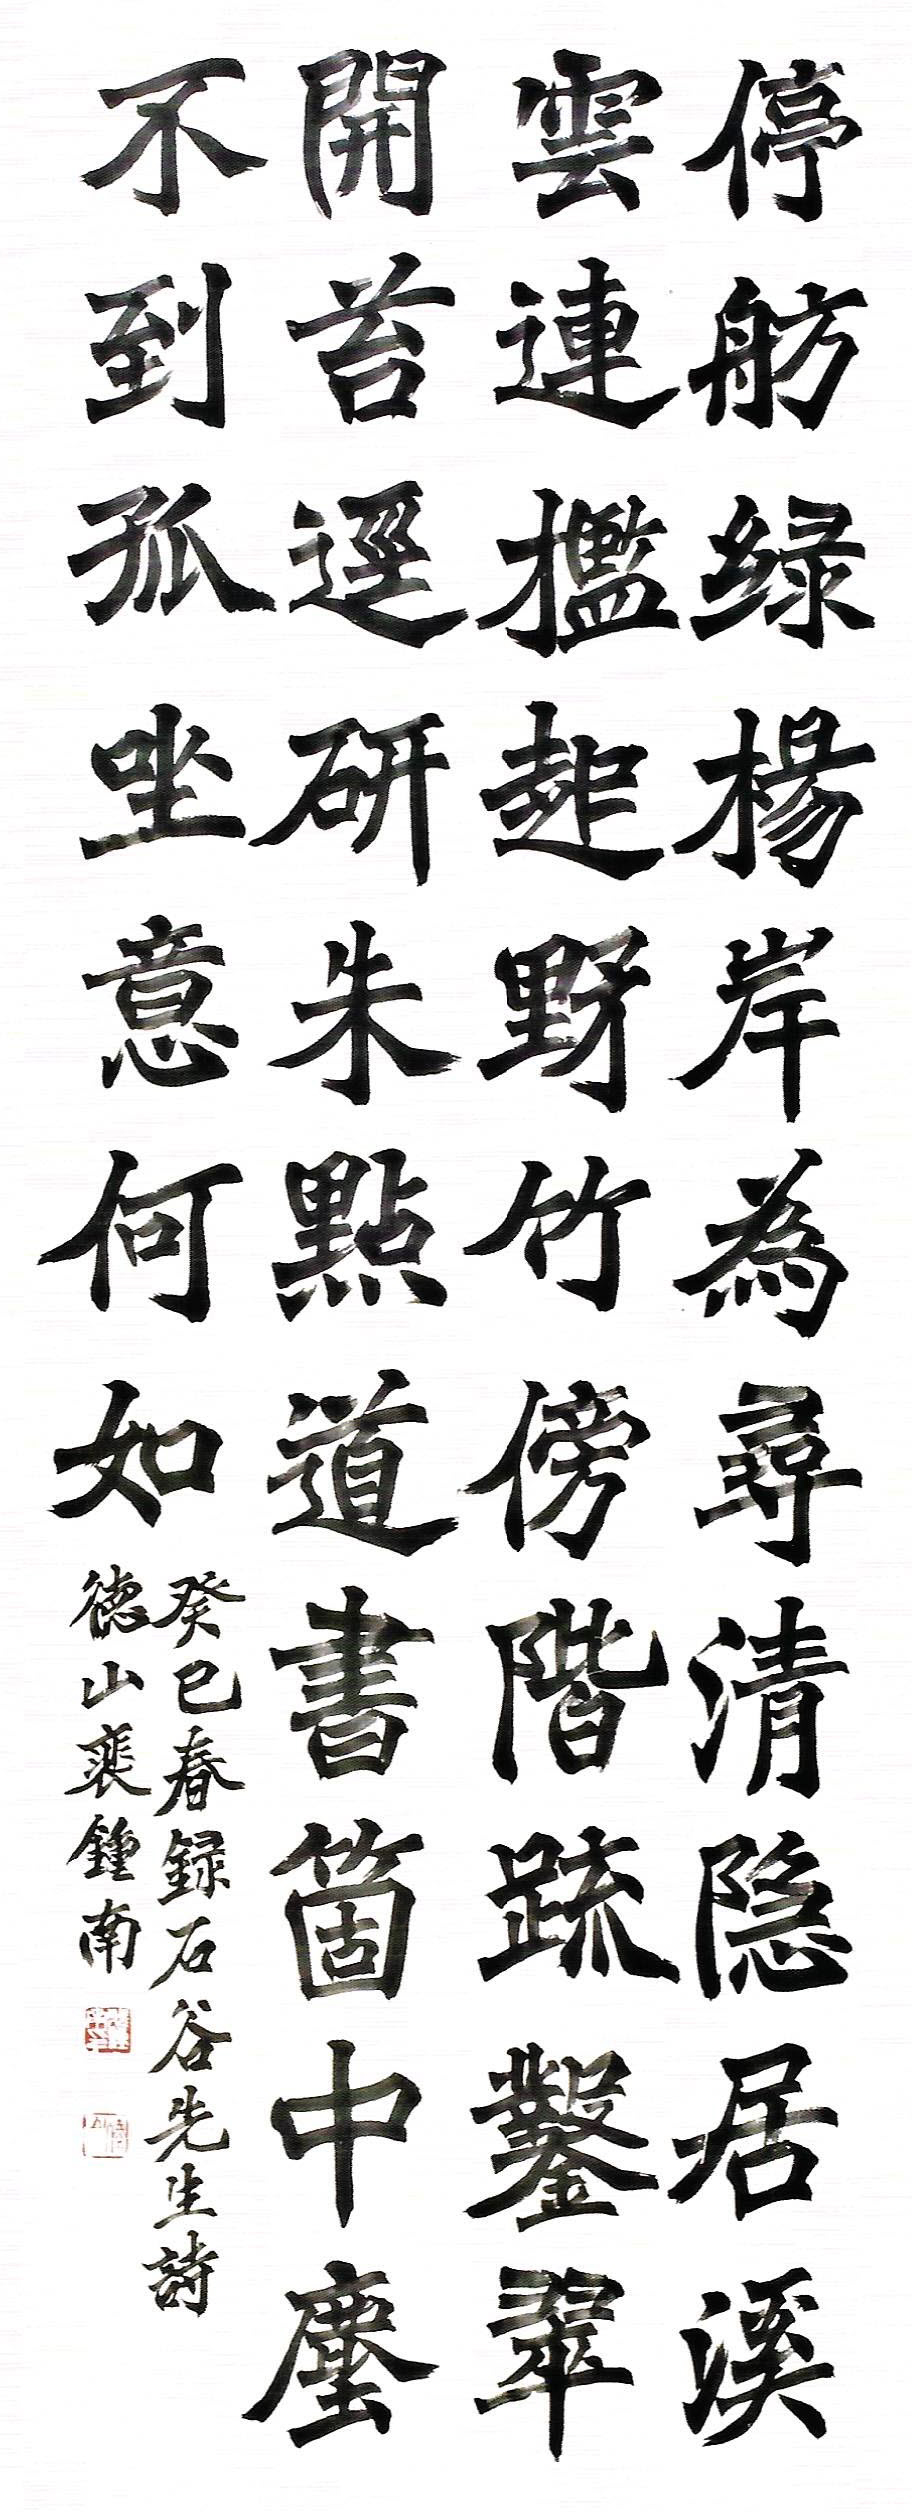 停舫綠楊岸為尋清隐居溪
雲連檻起野竹傍階疏鑿翠
開苔逕研朱點道書箇中塵
不到孤坐意何如
癸巳春録石谷先生詩
德山裵鍾南